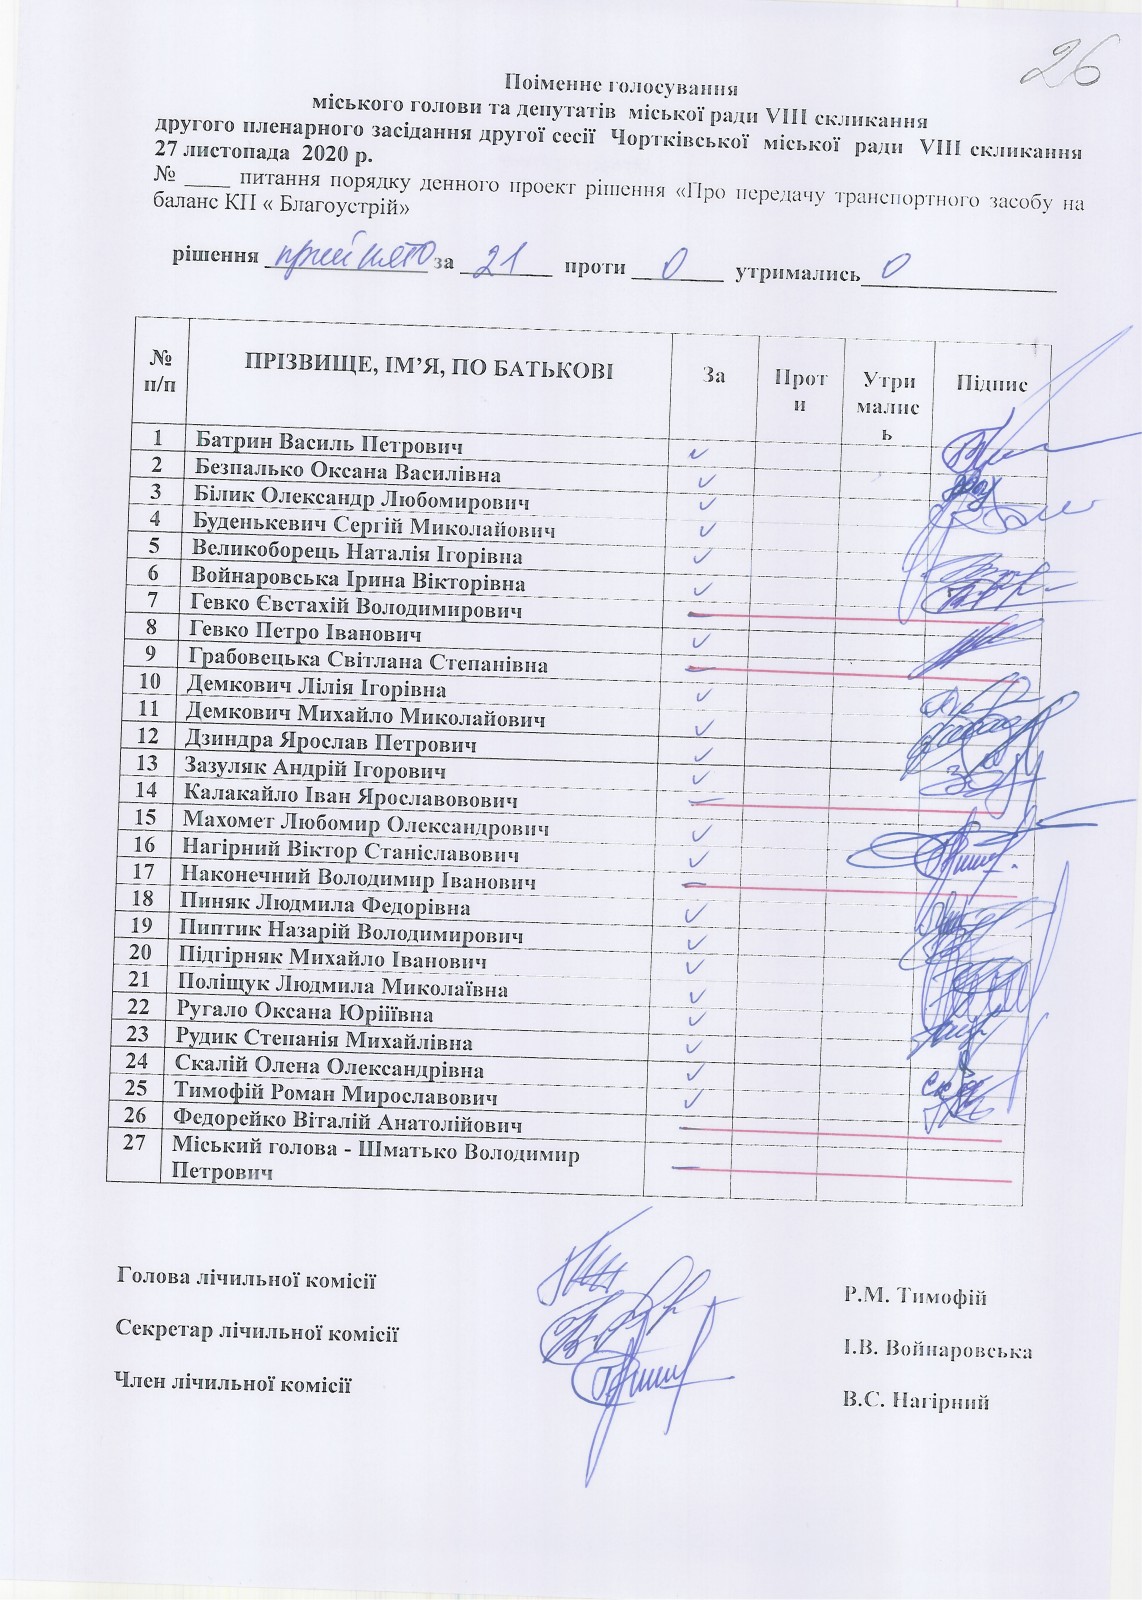 26
Поіменне голосування
міського голови та депутатів міської ради VIII скликання
другого пленарного засідання другої сесії Чортківської міської ради VIII скликання
27 листопада 2020 р.
№ ____ питання порядку денного проект рішення «Про передачу транспортного засобу на
баланс КП « Благоустрій»
рішення прийнято за 21 проти 0 утримались 0
№ п/п ПРІЗВИЩЕ, ІМ’Я, ПО БАТЬКОВІ За Проти Утрималис ь Підпис
1 Батрин Василь Петрович ✓
2 Безпалько Оксана Василівна ✓
3 Білик Олександр Любомирович ✓
4 Буденькевич Сергій Миколайович ✓
5 Великоборець Наталія Ігорівна ✓
6 Войнаровська Ірина Вікторівна ✓
7 Гевко Євстахій Володимирович
8 Гевко Петро Іванович ✓
9 Грабовецька Світлана Степанівна
10 Демкович Лілія Ігорівна ✓
11 Демкович Михайло Миколайович ✓
12 Дзиндра Ярослав Петрович ✓
13 Зазуляк Андрій Ігорович ✓
14 Калакайло Іван Ярославовович
15 Махомет Любомир Олександрович ✓
16 Нагірний Віктор Станіславович ✓
17 Наконечний Володимир Іванович
18 Пиняк Людмила Федорівна ✓
19 Пиптик Назарій Володимирович ✓
20 Підгірняк Михайло Іванович ✓
21 Поліщук Людмила Миколаївна ✓
22 Ругало Оксана Юріїївна ✓
23 Рудик Степанія Михайлівна ✓
24 Скалій Олена Олександрівна ✓
25 Тимофій Роман Мирославович ✓
26 Федорейко Віталій Анатолійович
27 Міський голова - Шматько Володимир
Петрович
Голова лічильної комісії Р.М. Тимофій
Секретар лічильної комісії І.В. Войнаровська
Член лічильної комісії В.С. Нагірний